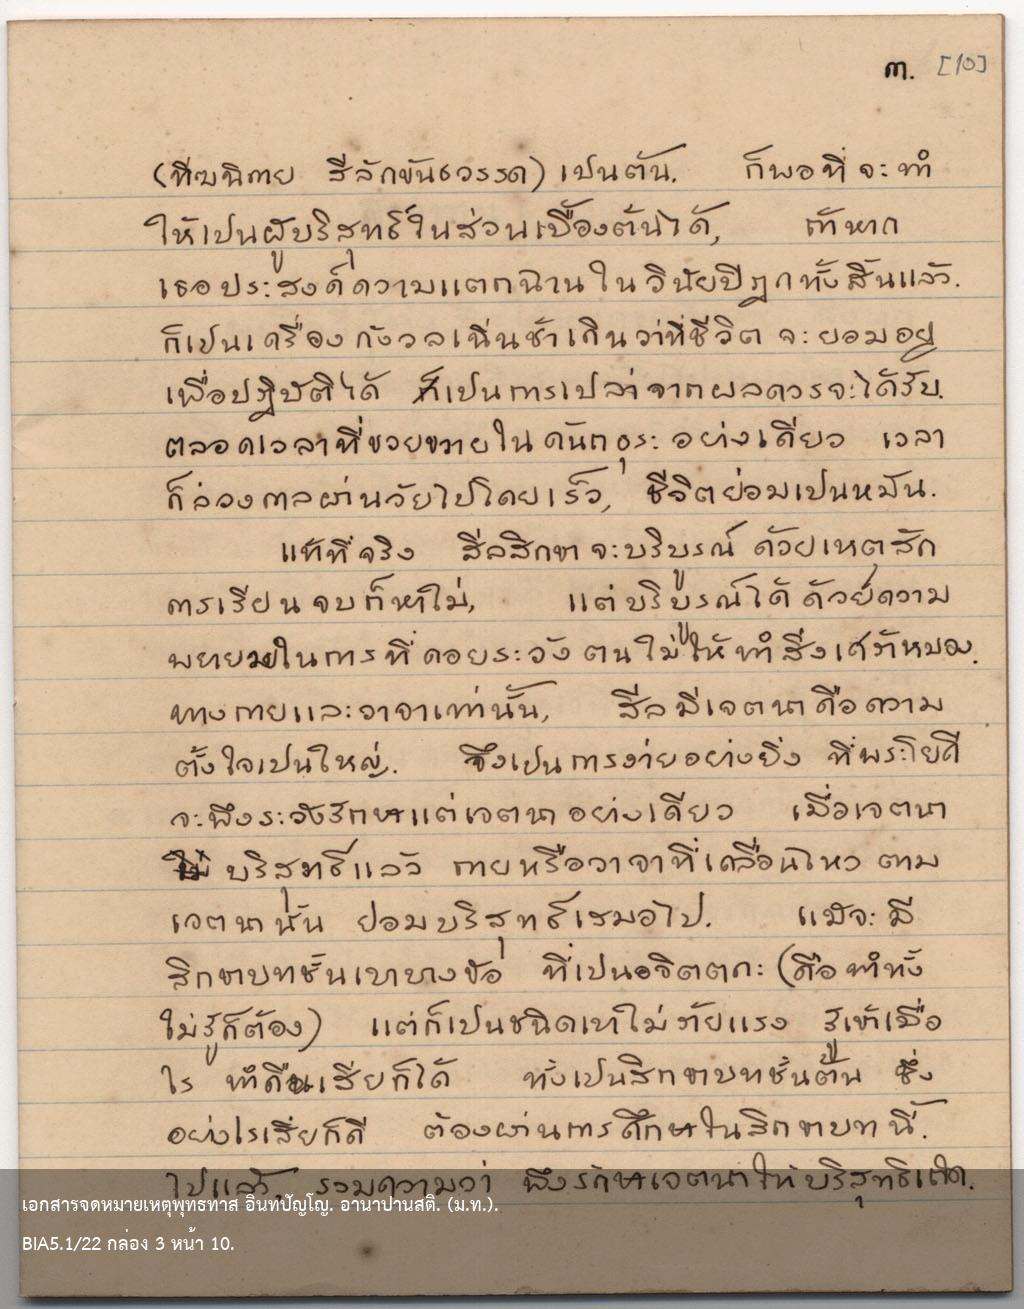 ๓. [10]
(ทีฆนิกาย สีลักขันธวรรค) เปนต้น. ก็พอที่จะทำ
ให้เปนผู้บริสุทธิ์ในส่วนเบื้องต้นได้, ถ้าหาก
เธอประสงค์ความแตกฉานในวินัยปิฎกทั้งสิ้นแล้ว.
ก็เปนเครื่องกังวลเนิ่นช้าเกินว่าที่ชีวิตจะยอมอยู่
เพื่อปฏิบัติได้ ก็เปนการเปล่าจากผลควรจะได้รับ.
ตลอดเวลาที่ขวยขวายในคันถธุระอย่างเดียว เวลา
ก็ล่วงกาลผ่านวัยไปโดยเร็ว, ชีวิตย่อมเปนหมัน.
แท้ที่จริง สีลสิกขาจะบริบูรณ์ ด้วยเหตุสัก
การเรียนจบก็หาไม่, แต่บริบูรณ์ได้ด้วยความ
พยายามในการที่คอยระวังตนไม่ให้ทำสิ่งเศร้าหมอง.
ทางกายและวาจาเท่านั้น, สีลมีเจตนาคือความ
ตั้งใจเปนใหญ่. จึงเปนการง่ายอย่างยิ่ง ที่พระโยคี
จะพึงระวังรักษาแต่เจตนาอย่างเดียว เมื่อเจตนา
บริสุทธิ์แล้ว กายหรือวาจาที่เคลื่อนไหวตาม
เจตนานั้น ย่อมบริสุทธิ์เสมอไป. แม้จะมี
สิกขาบทชั้นเบาบางข้อ ที่เปนอจิตตกะ (คือทำทั้ง
ไม่รู้ก็ต้อง) แต่ก็เปนชนิดเบาไม่ร้ายแรง รู้เข้าเมื่อ
ไร ทำคืนเสียก็ได้ ทั้งเปนสิกขาบทชั้นต้น ซึ่ง
อย่างไรเสียก็ดี ต้องผ่านการศึกษาในสิกขาบทนี้.
ไปแล้ว. รวมความว่า พึงรักษาเจตนาให้บริสุทธิ์เถิด.
เอกสารจดหมายเหตุพุทธทาส อินฺทปัญโญ. อานาปานสติ. (ม.ท.).
BIA5.1/22 กล่อง 3 หน้า 10.